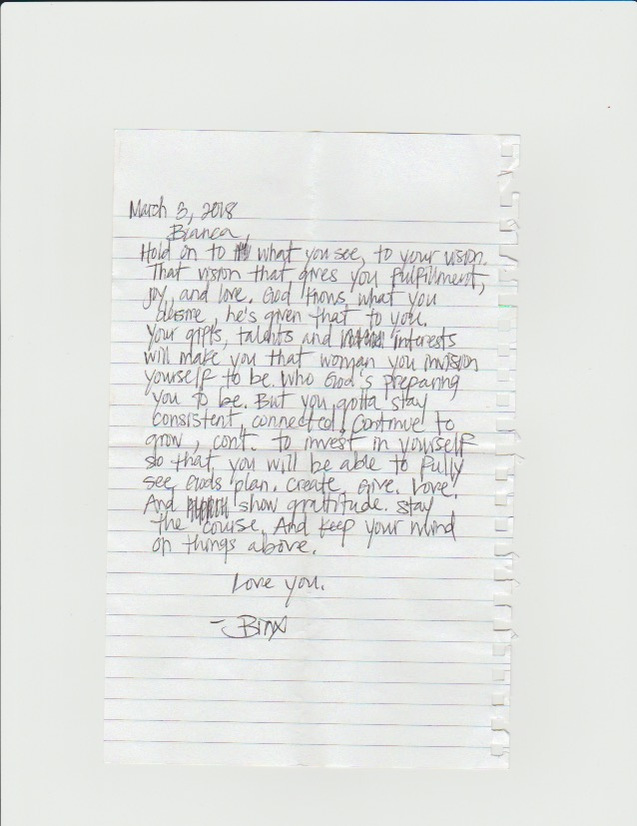 March 3, 2018
Bianca,
Hold on to what you see, to your vision.
That vision that gives you fulfillment,
joy, and love. God knows what you
desire, he's given that to you.
Your gifts, talents and interests
will make you that woman you invision
yourself to be. Who God's preparing
you to be. But you gotta stay
consistent, connected! Continue to
grow, cont. to invest in yourself
so that you will be able to fully
see Gods plan. Create. Give. Love.
And show grattitude. Stay
the course. And keep your mind
on things above.
Love you.
- Binx